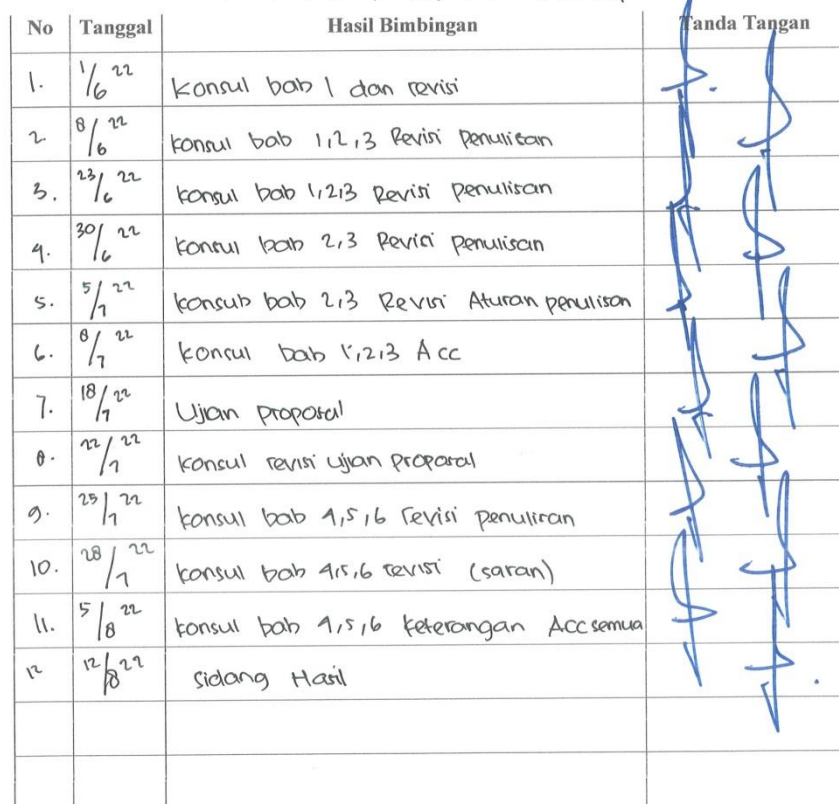 No Tanggal Hasil Bimbingan Tanda Tangan
1. 1/6 22 Konsul bab 1 dan revisi
2 8/6 22 konsul bab 1,2,3 Revisi penulisan
3. 23/6 22 konsul bab 1,2,3 Revisi penulisan
4. 30/6 22 konsul bab 2,3 Revisi penulisan
5. 5/7 22 konsub bab 2,3 Revisi Aturan penulisan
6. 8/7 22 konsul bab 1,2,3 Acc
7. 18/7 22 Ujian proposal
8. 22/7 22 konsul revisi ujian proposal
9. 25/7 22 konsul bab 4,5,6 revisi penulisan
10. 28/7 22 konsul bab 4,5,6 revisi (saran)
11. 5/8 22 konsul bab 4,5,6 keterangan Acc semua
12 12/8 22 sidang Hasil